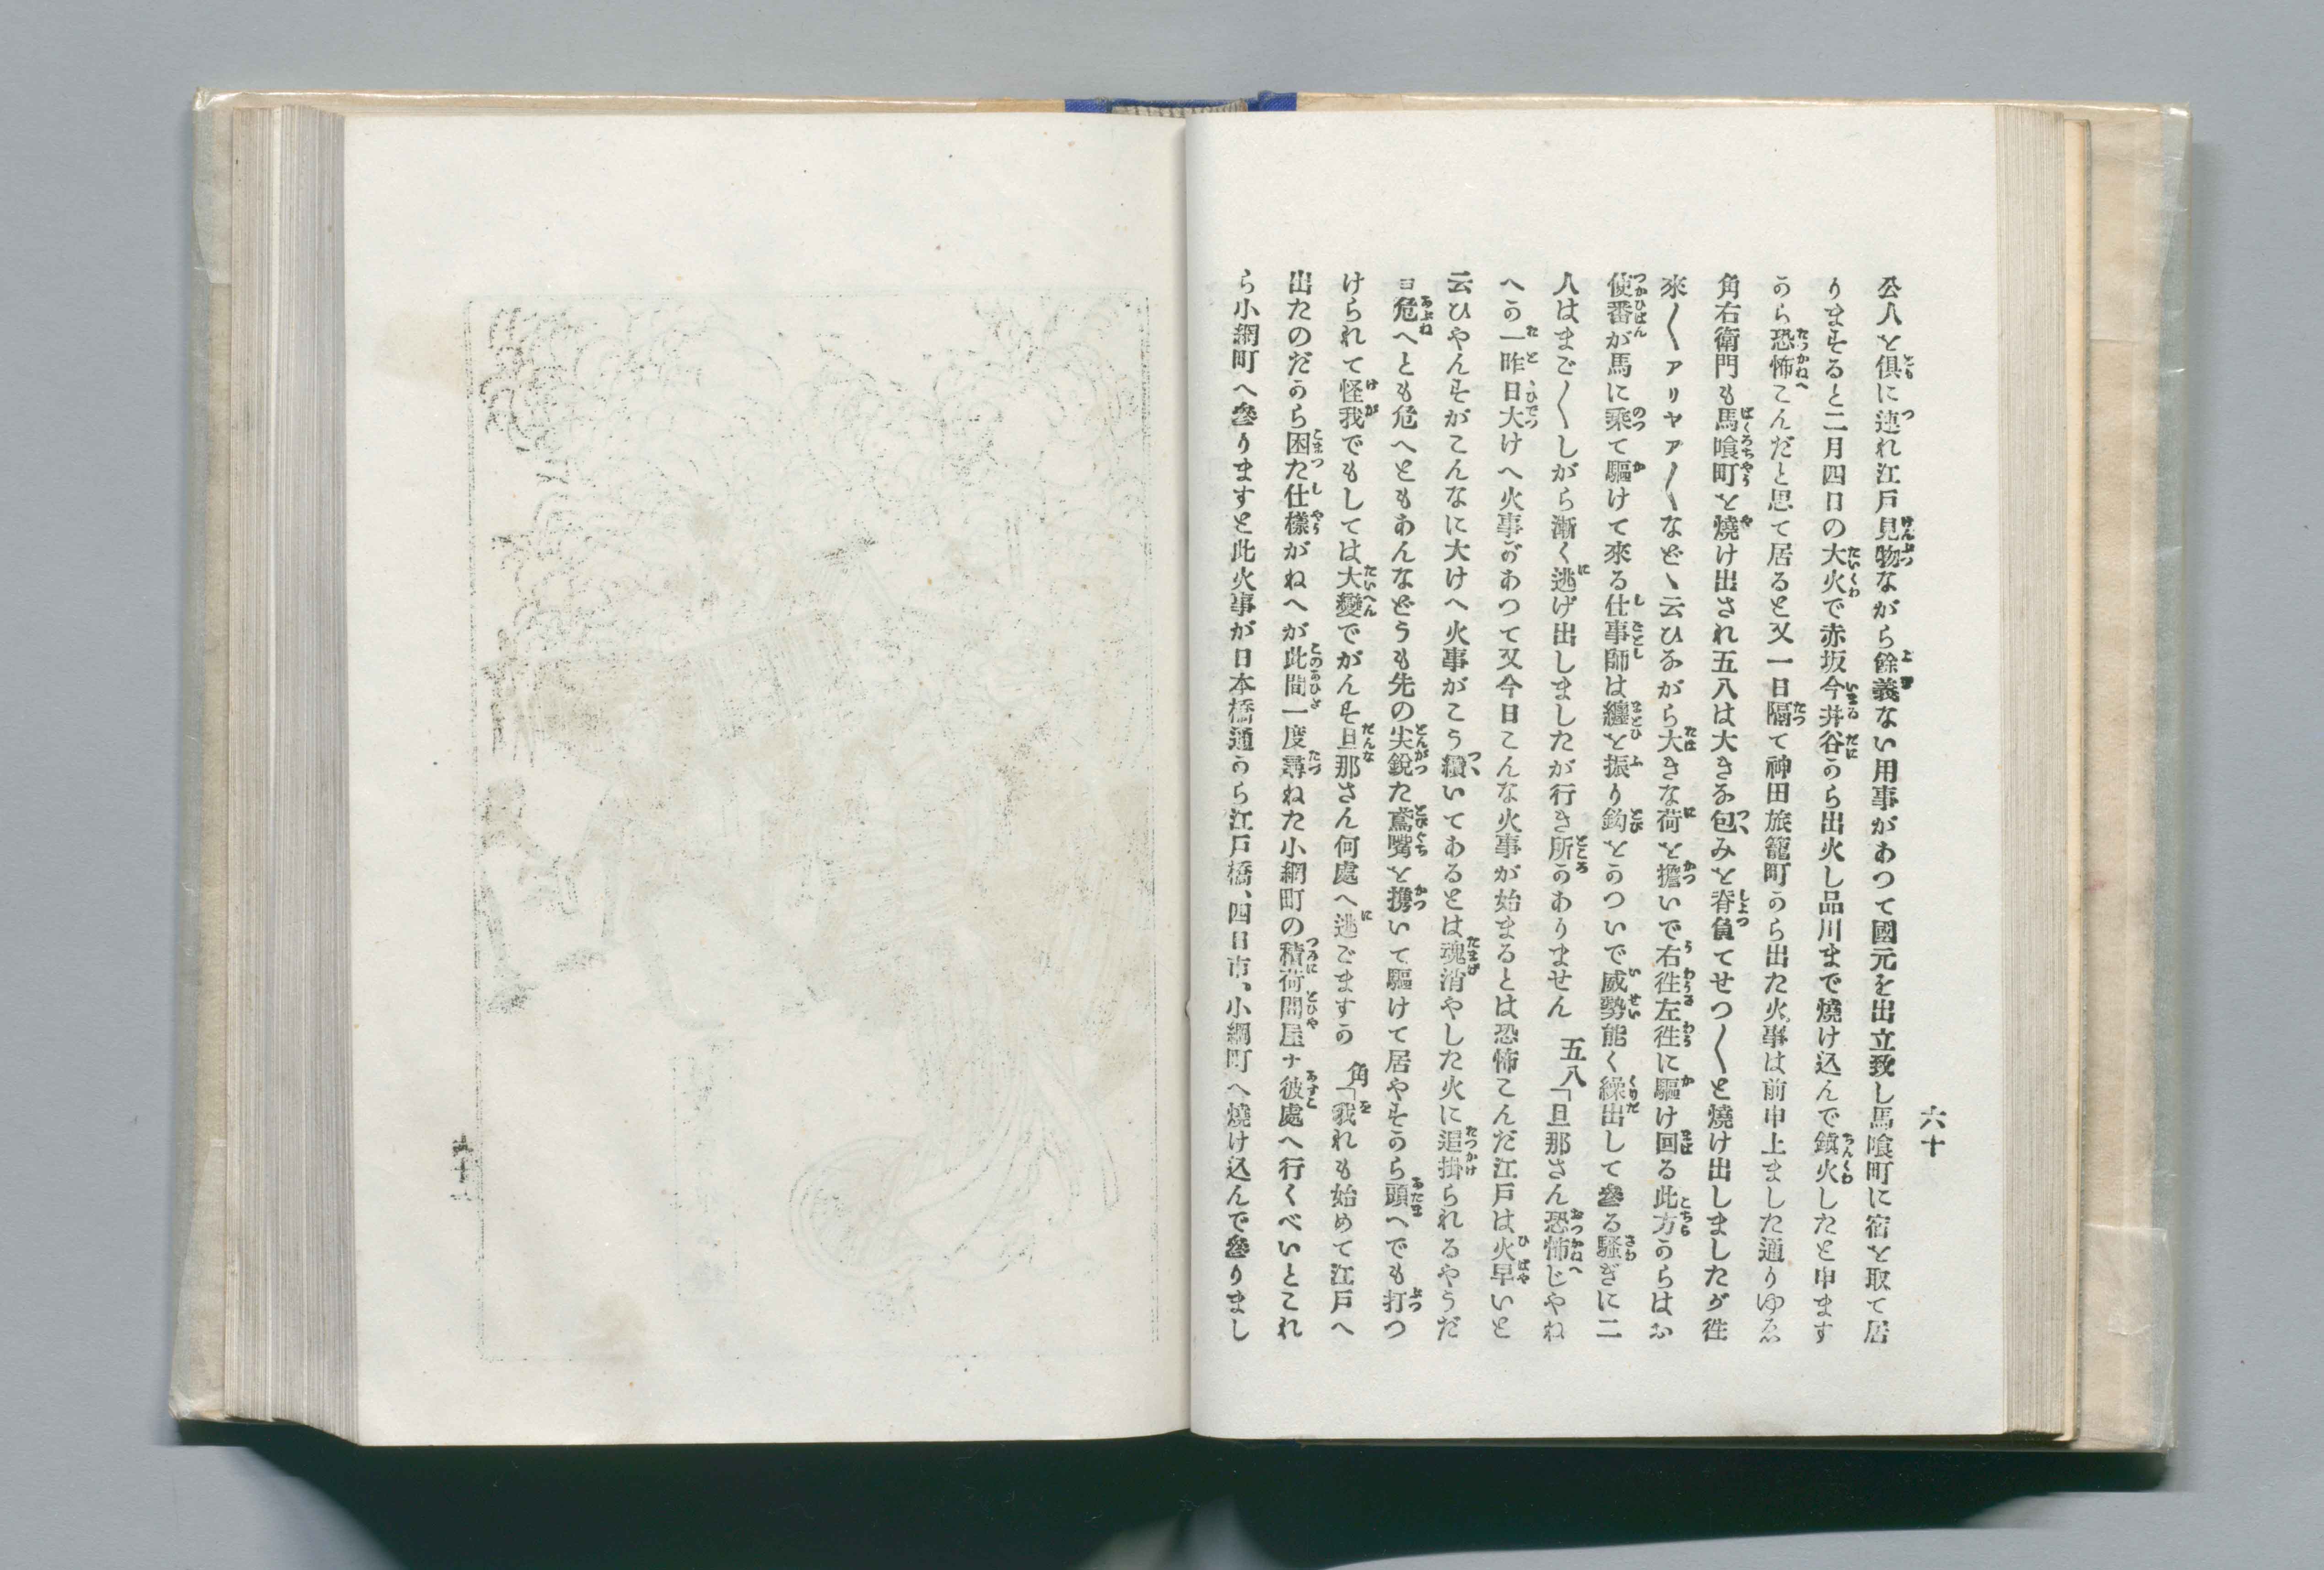 六十
公人と倶に連れ江戸見物ながら餘義ない用事があつて國元を出立致し馬喰町に宿と取て居
りまそると二月四日の大火で赤坂今井谷から出火し品川まで燒け込んで鎮火したと申ます
から恐怖こんだと思て居ると又一日隔て神田旅籠町から出た火事は前申上ました通りゆゑ
角右衛門も馬喰町と燒け出され五八は大きな包みと脊負てせつ〳〵と燒け出しましたが徃
來〳〵アリヤア〳〵などゝ云ひながら大きな荷と擔いで右徃左徃に驅け回る此方からはお
使番が馬に乘て驅けて來る仕事師は纏と振り鈎とかついで威勢能く繰出して參る騷ぎに二
人はまご〳〵しがら漸く逃げ出しましたが行き所かありません　五八「旦那さん恐怖じやね
への一昨日大けへ火事があつて又今日こんな火事が始まるとは恐怖こんだ江戸は火早いと
云ひやんそがこんなに大けへ火事がこう續いてあるとは魂消やした火に追掛られるやうだ
ヨ危へとも危へともあんなどうも先の尖銳た鳶嘴と携いて驅けて居やそから頭へでも打つ
けられて怪我でもしては大變でがんそ旦那さん何處へ逃ごますか　角「我れも始めて江戸へ
出たのだから困た仕樣がねへが此間一度尋ねた小網町の積荷問屋ナ彼處へ行くべいとこれ
ら小網町へ參りますと此火事が日本橋通から江戸橋、四日市、小網町へ燒け込んで參りまし